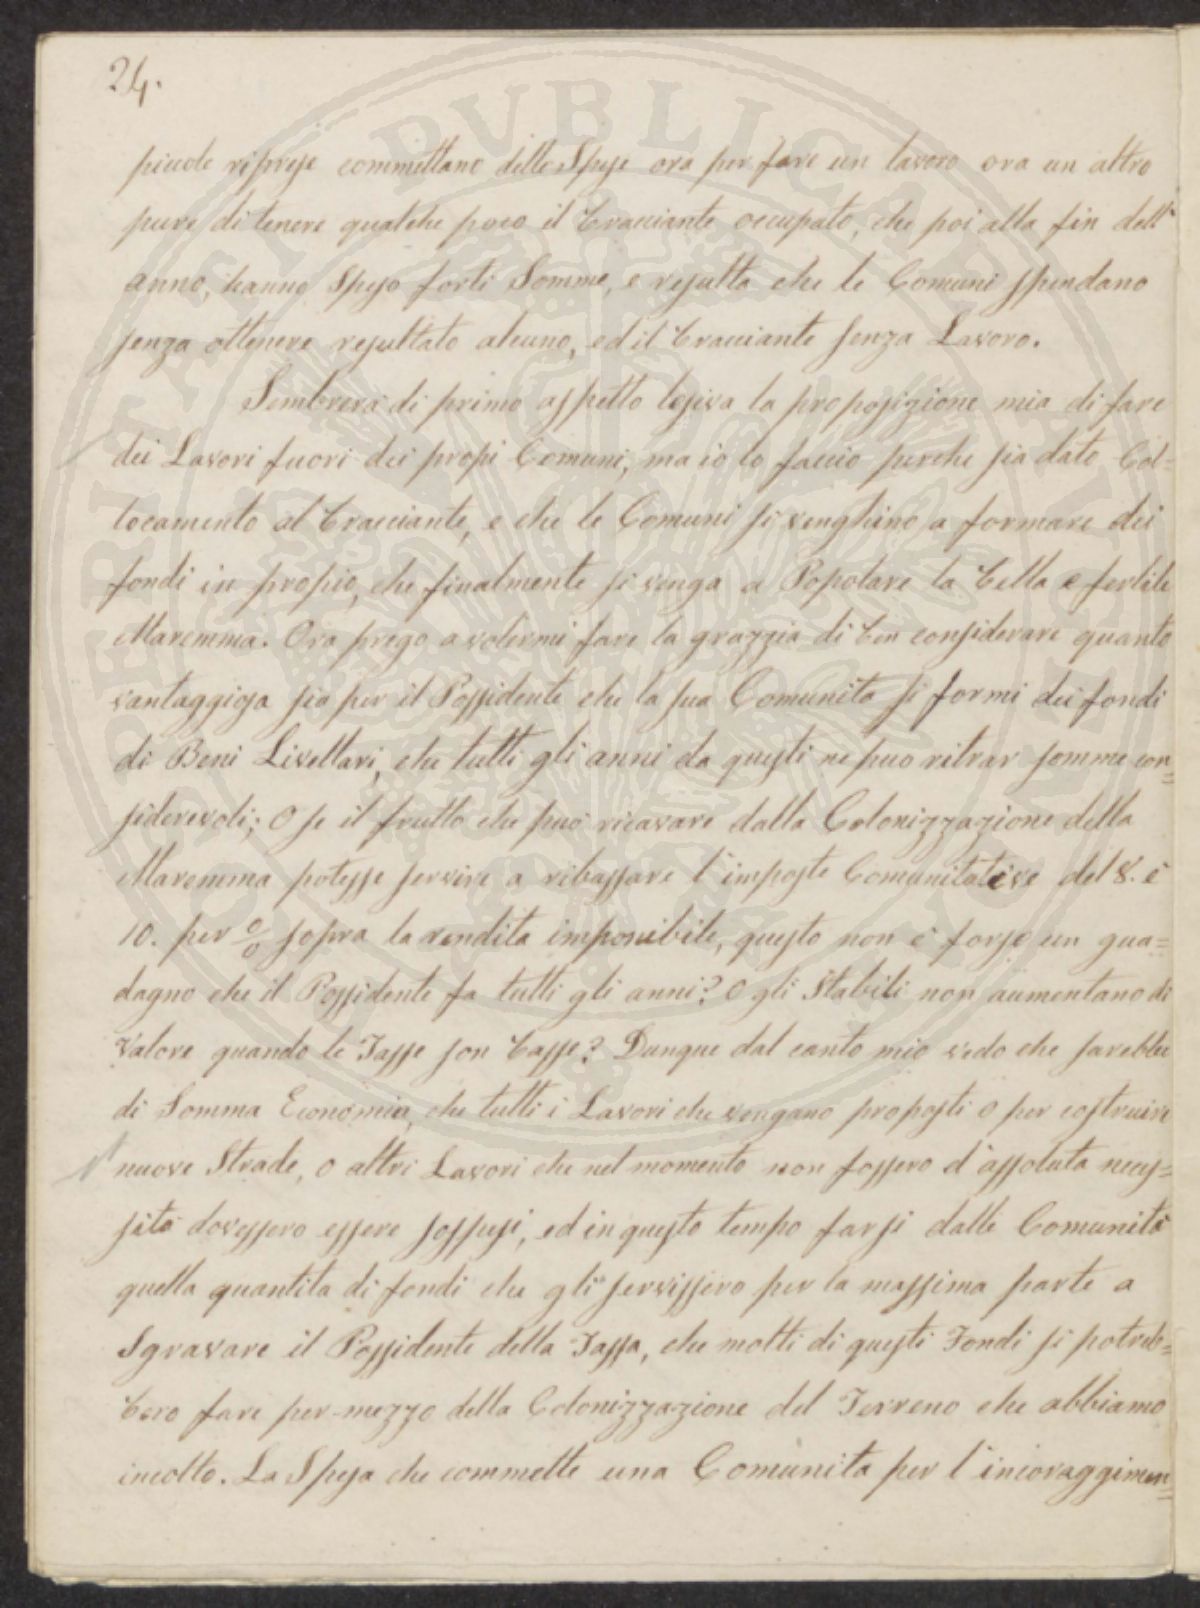 24.
piccole riprese commettano delle Spese ora per fare un lavoro ora un altro
pure di tenere qualche poco il bracciante occupato, che poi alla fin dell'
anno, hanno Speso forti Somme, e resulta che le Comuni spendano
senza ottenere resultato alcuno, ed il bracciante senza Lavoro.
Sembrerà di primo aspetto lesiva la proposizione mia di fare
dei Lavori fuori dei propi Comuni, ma io lo faccio perche sia dato Col=
locamento al bracciante, e che le Comuni si venghino a formare dei
fondi in propio, che finalmente si venga a Popolare la bella e fertile
Maremma. Ora prego a volermi fare la grazzia di ben considerare quanto
vantaggiosa sia per il Possidente che la sua Comunita si formi dei fondi
di Beni Livellari, che tutti gli anni da questi ne puo ritrar somme con=
siderevoli; O se il frutto che può ricavare dalla Colonizzazione della
Maremma potesse servire a ribassare l'imposte Comunitative del 8. è
10. per % sopra la rendita imponibile, questo non è forse un gua=
dagno che il Possidente fa tutti gli anni? O gli Stabili non aumentano di
Valore quando le Tasse son basse? Dunque dal canto mio vedo che sarebbe
di Somma Economia, che tutti i Lavori che vengano proposti o per costruire
nuove Strade, o altri Lavori che nel momento non fossero d'assoluta neces=
sità dovessero essere sospesi, ed in questo tempo farsi dalle Comunità
quella quantita di fondi che gli servissero per la massima parte a
Sgravare il Possidente della Tassa, che molti di questi Fondi si potreb=
bero fare per-mezzo della Colonizzazione del Terreno che abbiamo
incolto. La Spesa che commette una Comunita per l'incoraggimen=
PUBLICAE